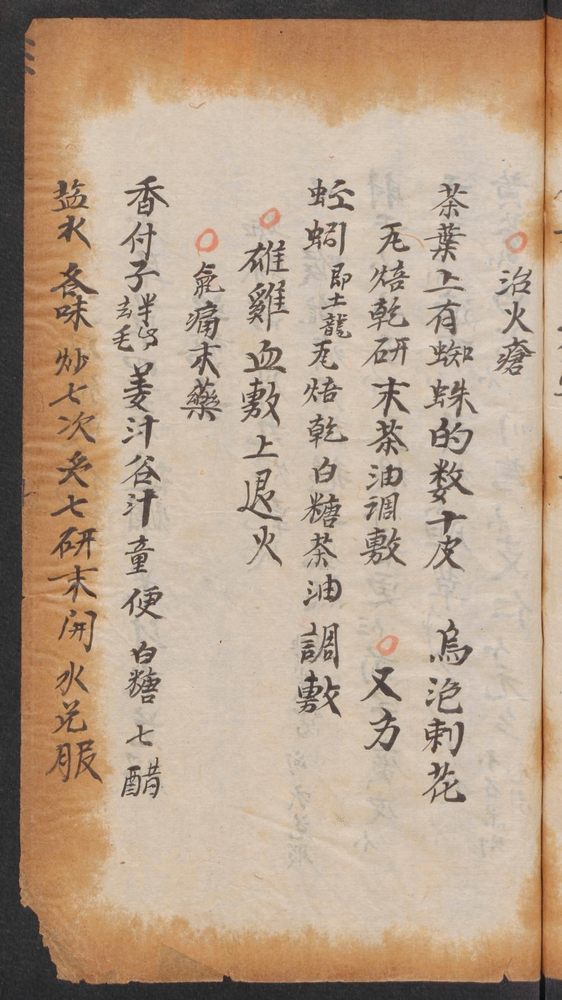 ○治火瘡
茶葉上有蜘蛛的数十皮 烏泡刺花
瓦焙乾研末茶油調敷 ○又方
蚯蚓即土龍瓦焙乾白糖茶油調敷
○雄雞血敷上退火
○氣痛末藥
香付子半斤去毛姜汁谷汁童便白糖七醋
盐水各味炒七次炙七研末開水兑服